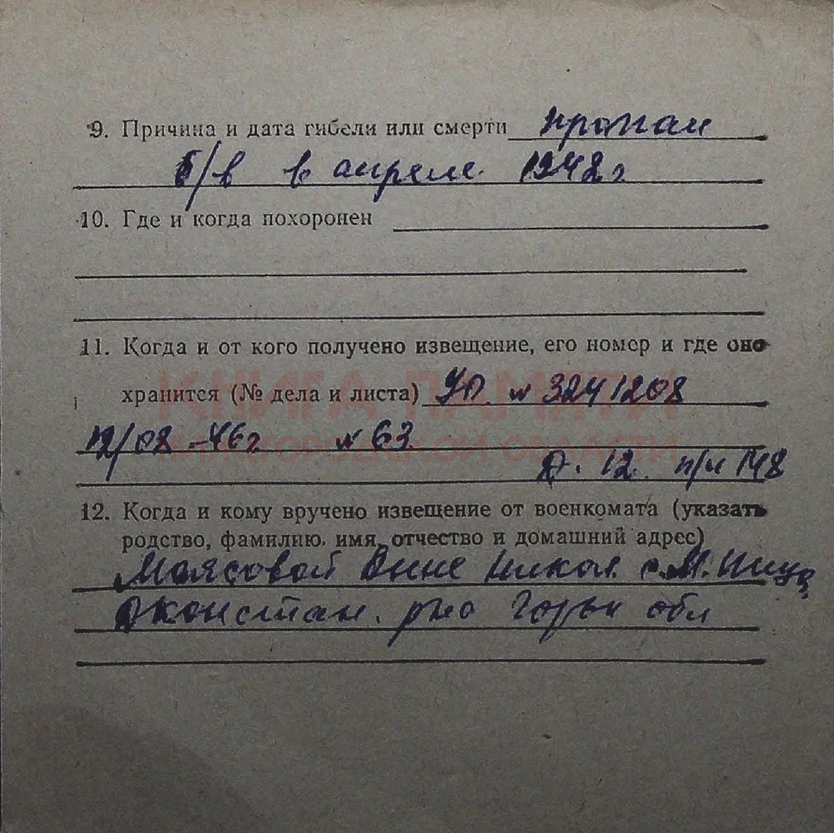 9. Причина и дата гибели или смерти пропал
б/в в апреле 1942г
10. Где и когда похоронен
11. Когда и от кого получено извещение, его номер и где оно
хранится (№ дела и листа) УП № 3241208
КНИГА ПАМЯТИ
12/08-46г №63
НИЖЕГОРОДСКОЙ ОБЛАСТИ
Д. 12. п/н 148
12. Когда и кому вручено извещение от военкомата (указать
родство, фамилию, имя, отчество и домашний адрес)
Маясовой Анне Никол. с. М.
Дконстан. рно Горьк обл